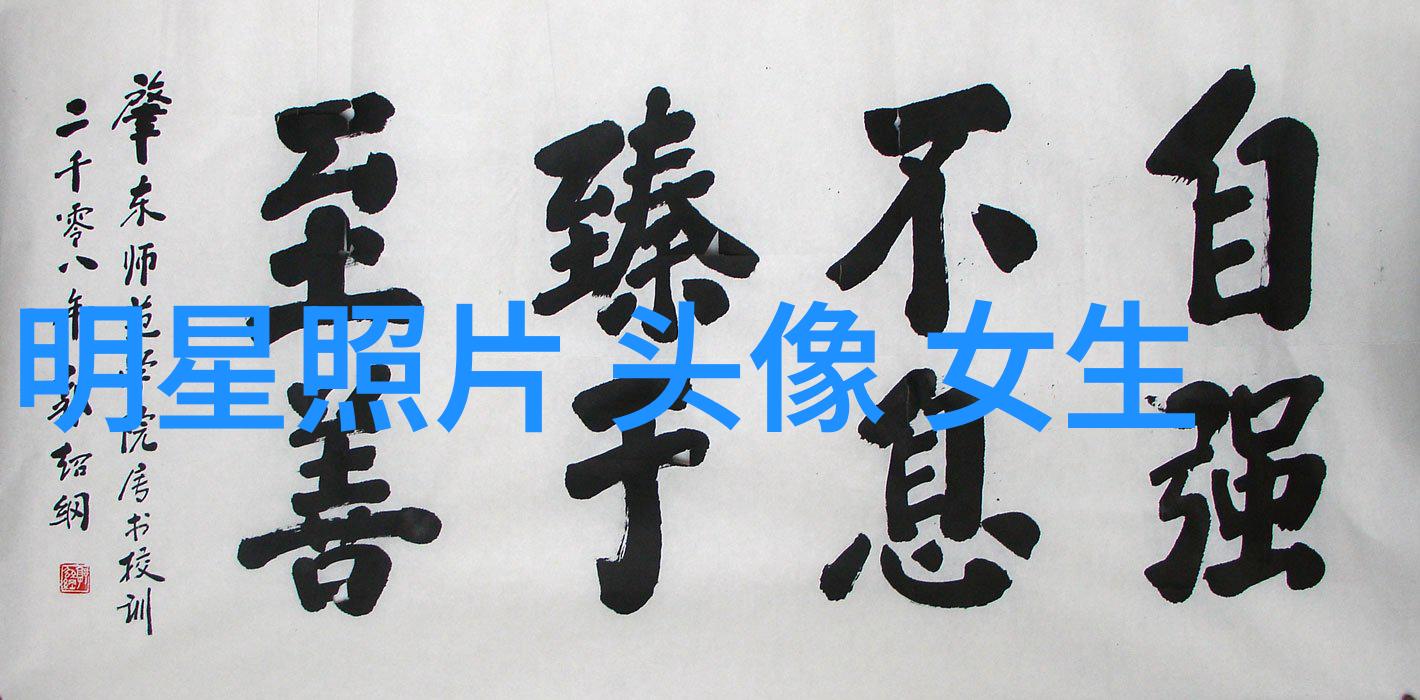 自强
不息
臻于
至善
肇东师范学院属书校训
二千零八年
绍纲
明星照片 头像 女生